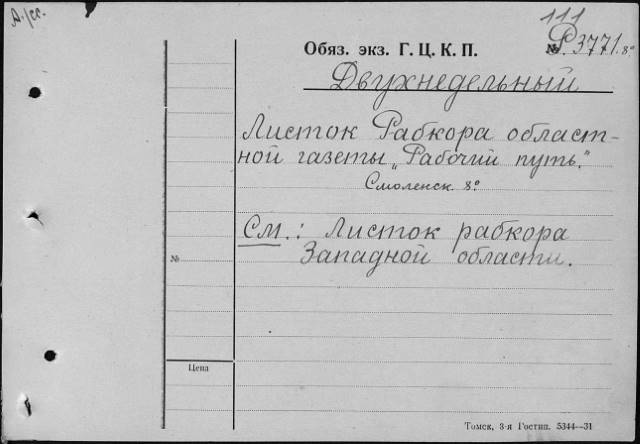 А./сс.
111
Обяз. экз. Г. Ц. К. П. № Р. 3771. 8º
Двухнедельный
Листок Рабкора област-
ной газеты „Рабочий путь."
Смоленск. 8º
См.: Листок рабкора
Западной области.
№
Цена
Томск, 3-я Гостип. 5344—31